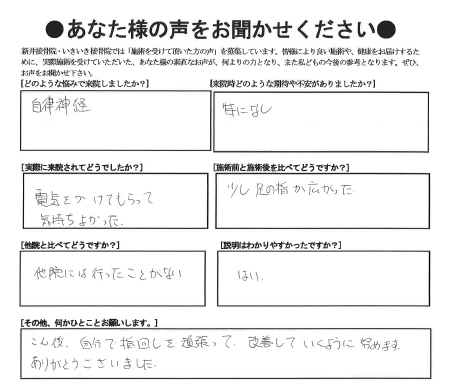 ●あなた様の声をお聞かせください●
新井接骨院・いきいき接骨院では「施術を受けて頂いた方の声」を募集しています。皆様により良い施術や、健康をお届けするた
めに、実際施術を受けていただいた、あなた様の素直なお声が、何よりの力となり、また私どもの今後の参考となります。ぜひ、
お声をお聞かせ下さい。
[どのような悩みで来院しましたか?]
自律神経
[来院時どのような期待や不安がありましたか?]
特になし
[実際に来院されてどうでしたか?]
電気をかけてもらって
気持ちよかった
[施術前と施術後を比べてどうですか?]
少し足の指が広がった
[他院と比べてどうですか?]
他院には行ったことがない
[説明はわかりやすかったですか?]
はい
[その他、何かひとことお願いします。]
こん後、自分で指回しを頑張って、改善していくように努めます
ありがとうございました